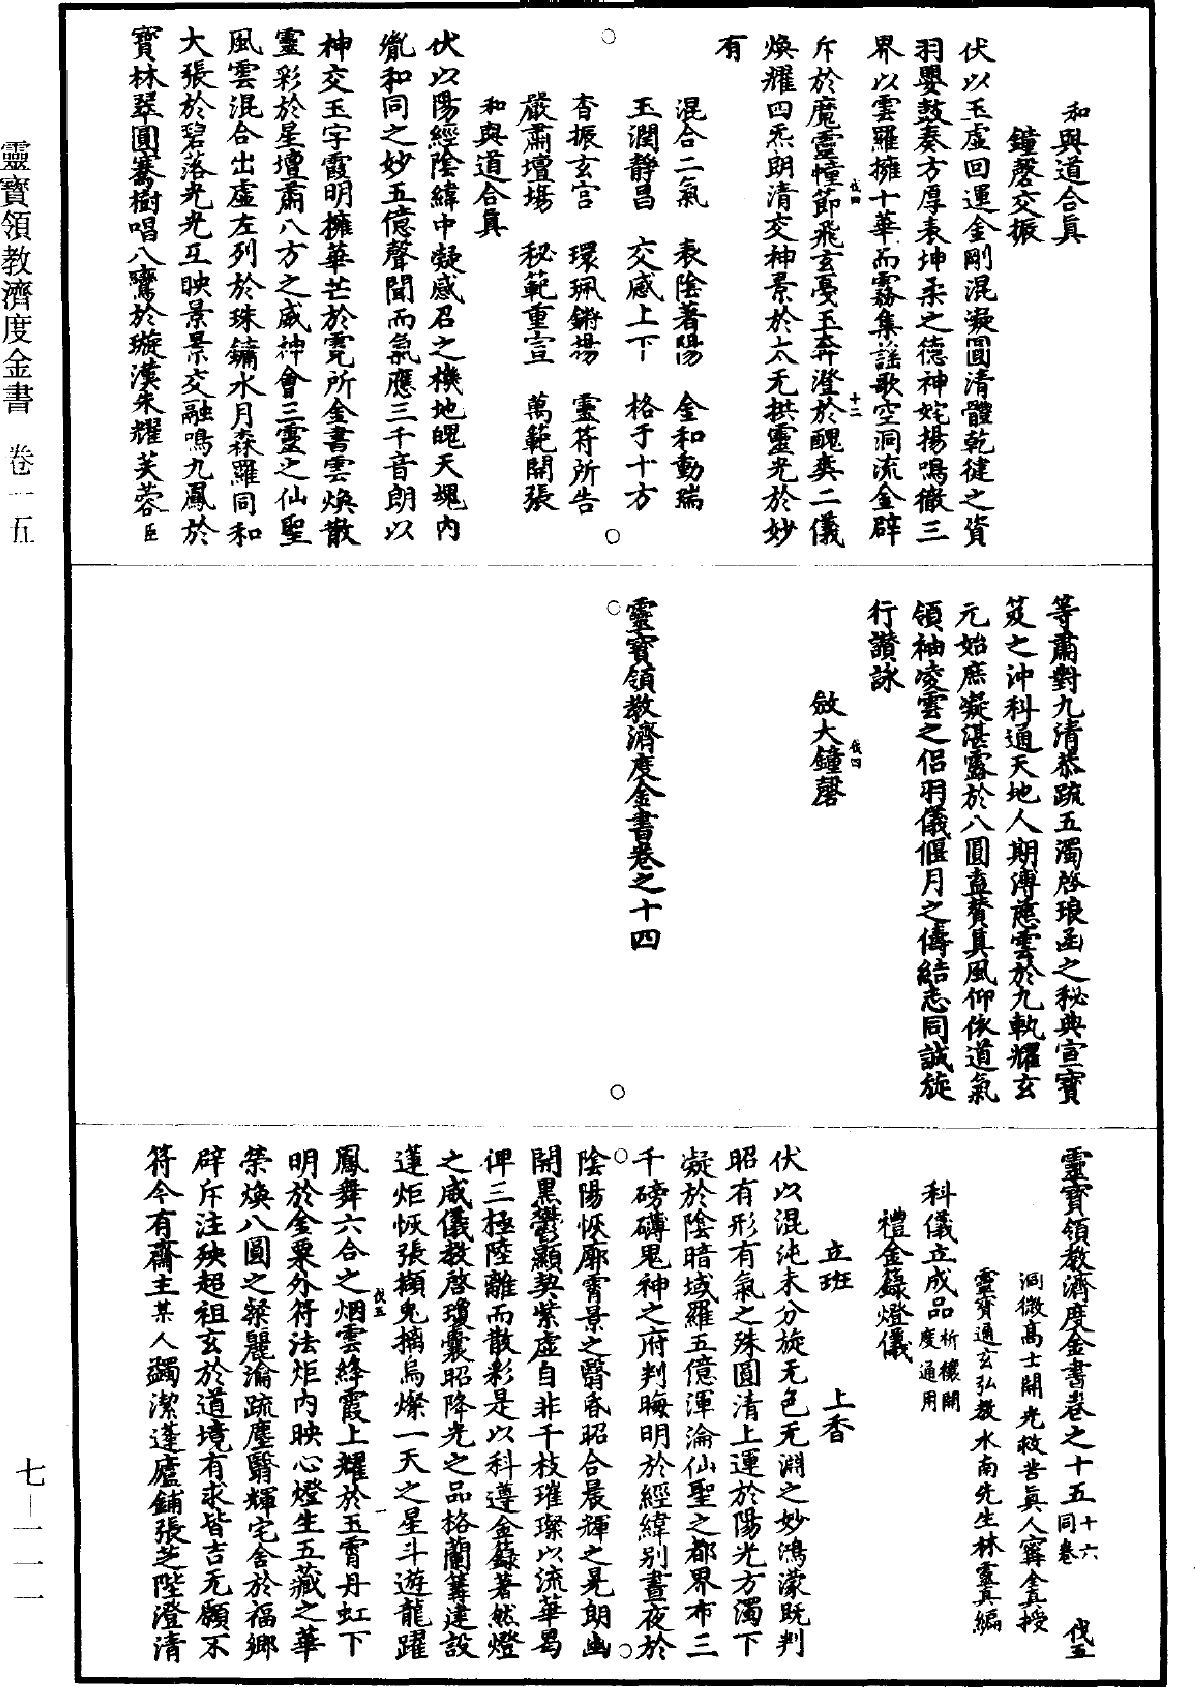 靈寶領教濟度金書　卷一五
和與道合眞
鐘磬交振
伏以玉虛回運金剛混凝圓清體乾徤之資
羽嬰鼓奏方厚表坤柔之德神姹揚鳴徹三
界以雲羅擁十華而霧集謡歌空洞流金辟
斥於魔靈幢節飛玄戞玉奔澄於醜爽二儀
煥耀四炁朗清交神景於太无拱靈光於妙
有
混合二氣　表陰著陽　金和動瑞
玉潤靜昌　交感上下　格于十方
杳振玄宫　環珮鏘揚　靈符所告
嚴肅壇場　秘範重宣　萬範開張
和與道合眞
伏以陽經陰緯中凝感召之機地魄天魂内
胤和同之妙五億聲聞而氣應三千音朗以
神交玉字霞明擁華芒於霓所金書雲煥散
靈彩於星壇肅八方之威神會三靈之仙聖
風雲混合出虛左列於珠鏞水月森羅同和
大張於碧落光光互映景景交融鳴九鳳於
寶林翠圓騫樹唱八鸞於璇漢朱耀芙蓉臣
等肅對九清恭䟽五濁啓琅函之秘典宣寶
笈之沖科通天地人期溥慈雲於九執耀玄
元始庶凝湛露於八圓直贊真風仰依道氣
領袖凌雲之侣羽儀偃月之儔結志同誠旋
行讃詠
敛大鐘磬
靈寶領教濟度金書卷之十四
靈寶領教濟度金書卷之十五十六同卷　伐五
洞微髙士開光救苦眞人寗全真授
靈寶通玄弘教水南先生林靈真編
科儀立成品祈禳開度通用
禮金籙燈儀
立班　　上香
伏以混沌未分旋无色无淵之妙鴻濛既判
昭有形有氣之殊圓清上運於陽光方濁下
凝於陰暗域羅五億渾淪仙聖之都界布三
千磅礴鬼神之府判晦明於經緯别晝夜於
陰陽恢廓霄景之翳昏昭合晨輝之晃朗幽
開黑鬱顯契紫虛自非千枝璀璨以流華曷
俾三極陸離而散彩是以科遵金籙著然燈
之威儀教啓瓊囊昭降光之品格蘭篝建設
蓮炬恢張擷兔摛烏燦一天之星斗遊龍躍
鳳舞六合之烟雲絳霞上耀於玉霄丹虹下
明於金粟外符法炬内映心燈生五藏之華
榮煥八圓之粲麗瀹疏塵翳輝宅舍於福鄉
辟斥注殃超祖玄於道境有求皆吉无願不
符今有齋主某人蠲潔蓬廬鋪張芝陛澄清
七－一一一